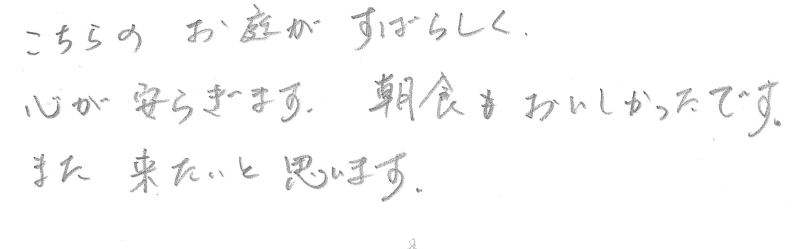 こちらの お庭が すばらしく.
心が 安らぎます. 朝食も おいしかったです。
また 来たいと 思います.